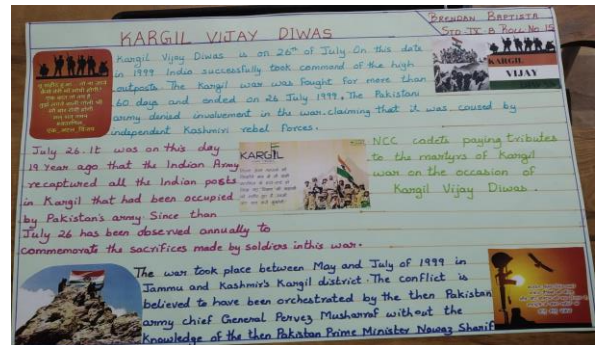 BRENDAN BAPTISTA
STD-IX-B ROLL-NO.15
KARGIL VIJAY DIWAS
Kargil Vijey Diwas is on 26th of July. On this date
in 1999 India successfully took command of the high
outposts. The Kargil war was fought for more than
60 days and ended on 26 July 1999. The Pakistani
army denied involvement in the war.claiming that it was caused by
independent Kashmiri rebel forces.
KARGIL
VIJAY
July 26. It was on this day
19 Year ago that the Indian Army
recaptured all the Indian posts
in Kargil that had been occupied
by Pakistan's army. Since than
July 26 has been observed annually to
commemorate the sacrifices made by soldiers inthis war.
KARGIL
NCC cadets paying tributes
to the martyrs of Kargil
war on the occasion of
Kargil Vijay Diwas.
The war took place between May and July of 1999 in
Jammu and Kashmir's Kargil district. The conflict is
believed to have been orchestrated by the then Pakistan
army chief General Pervez Musharrof without the
knowledge of the then Pakistan Prime Minister Nawaz Sharif